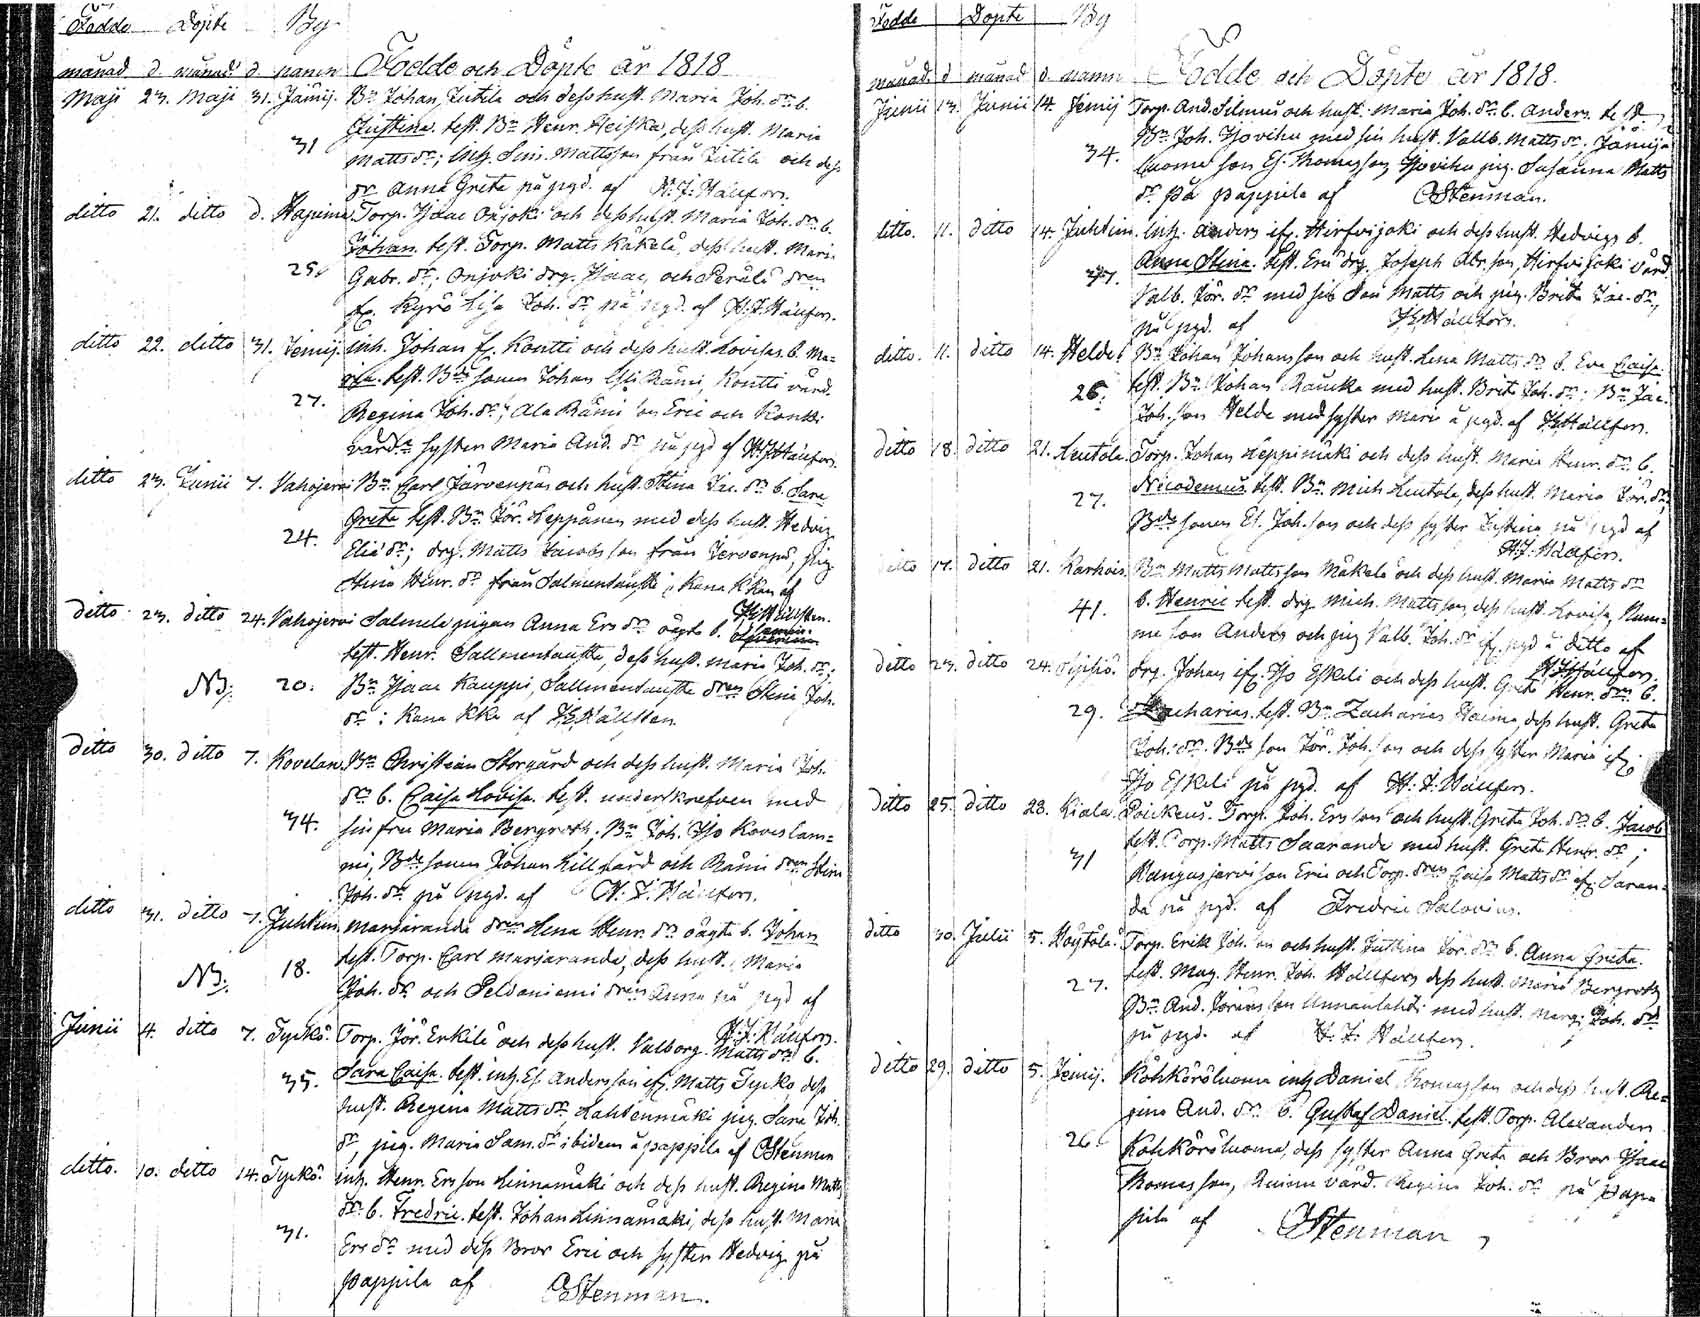 Födde Döpte By
månad d. månad d. namn Födde och Döpte år 1818
Maji 23. Maji 31. Jämij. Bn Johan Jutila och dess hust. Maria Joh. dr b.
Justina. test. Bn Henr. Heiska, dess hust. Maria
31 Matts dr; inh. Sim. Mattsson från Jutila och dess
dr Anna Greta på pgd. af H. J. Hällfors.
ditto 21. ditto d. Torp. Isaac Onjoki och dess hust. Maria Joh. dr b.
Johan. test. Torp. Matts Käkelä, dess hust. Maria
25. Gabr. dr; Onjoki drg. Isaac, och Perälä dren
Kyrö Lisa Joh. dr på pgd. af H. J. Hällfors.
ditto 22. ditto 31. Jemij. inh. Johan Kontti och dess hust. Lovisas b. Ma=
ria. test. Bde sonen Johan Rämi, Kontti värd.
27. Regina Joh. dr; Ala Rämi son Eric och Kontti
värd. syster Maria And. dr på pgd af H. J. Hällfors.
ditto 23. Junii 7. Vahojervi Bn Carl Järvenpää och hust. Stina Jac. dr b. Sara
Greta test. Bn Jör. Leppänen med dess hust. Hedvig
24. Eliæ dr; drg. Matts Jacobsson från Jervenpä, pig.
Stina Henr. dr från ; Kana Kka af
ditto 23. ditto 24. Vahojervi Salmela pigan Anna Ers dr oägta b.
test. Henr. dess hust. Maria Joh. dr;
NB. 20. Bn Isaac Kauppi, dren Stina Joh.
dr; Kana Kka af
ditto 30. ditto 7. Kovelan Bn Christian Storgård och dess hust. Maria Joh.
dr b. Caisa Lovisa. test. underskrefven med
34. sin fru Maria Bergroth, Bn Joh. Iso Koveslam=
mi, Bde sonen Johan Lillgård och Rämi dren Stina
Joh. dr på pgd. af H. J. Hällfors.
ditto 31. ditto 7. Juhtim Marjaranda dren Lena Henr. dr oägta b. Johan
test. Torp. Carl Marjaranda, dess hust. Maria
NB. 18. Joh. dr och Peldoniemi dren Anna på pgd af
H. J. Hällfors.
Junii 4. ditto 7. Tyrkö. Torp. Jör. Erkilä och dess hust. Valborg Matts dr b.
Sara Caisa. test. inh. Es. Andersson Matts Tyrkö dess
35. hust. Regina Matts dr, Lahdenmäki pig. Sara Joh.
dr, pig. Maria Sam. dr ibidem å pappila af CStenman
ditto. 10. ditto 14. Tyrkö. inh. Henr. Ersson Linnamäki och dess hust. Regina Matts
dr. b. Fredric. test. Johan Linnamäki, dess hust. Maria
31. Ers dr med dess Bror Eric och syster Hedvig på
pappila af CStenman.
Födde Döpte By
månad. d månad d. namn Födde och Döpte år 1818.
Junii 13. Junii 14. Jemij Torp. And. Silmus och hust. Maria Joh. dr b. Anders.
Bn Joh. med sin hust. Valb. Matts dr; Jämijä
34. luoma son Es. Thomasson, pig. Susanna Matts
dr på pappila af CStenman.
ditto. 11. ditto 14. Juhtim. inh. Anders Hirfvijoki och dess hust. Hedvigs b.
Anna Stina. test. drg. Joseph Abr.son, Hirfvijoki värd.
Valb. Jör. dr med sin son Matts och pig. Brita Jac. dr,
på pgd. af
ditto. 11. ditto 14. Helde. Bn Johan Johansson och hust. Lena Matts dr b. Eva Caisa.
26. test. Bn Johan Raucka med hust. Brita Joh. dr; Bn Jac.
Joh.son Helde med syster Maria å pgd. af
ditto 18. ditto 21. Leutola. Torp. Johan Leppimäki och dess hust. Maria Henr. dr b.
27. Nicodemus test. Bn Mich Leutola, dess hust. Maria Jör. dr,
Bde sonen Es. Joh.son och dess syster Justina på pgd af
H. J. Hällfors.
ditto 17. ditto 21. Karhois. Bn Matts Mattsson Mäkelä och dess hust. Maria Matts dr
41. b. Henric test. drg. Mich. Mattsson, dess hust. Lovisa, Num=
me son Anders och pig Valb. Joh. dr pgd å ditto af
H. J. Hällfors.
ditto 23. ditto 24. drg. Johan Iso Eskeli och dess hust. Greta Henr. dr b.
29. Zacharias. test. Bn Zacharias Haima, dess hust. Greta
Joh. dr. Bde son Jör. Joh.son och dess syster Maria
Iso Eskeli på pgd. af H. J. Hällfors.
ditto 25. ditto 28. Kiala. Poikkeus. Torp. Joh. Ersson och hust. Greta Joh. dr b. Jacob
test. Torp. Matts Saaranda med hust. Greta Henr. dr;
31 Kangasjarvi son Eric och Torp. dren Caisa Matts dr Saran=
da på pgd. af Fredric Salovius.
ditto 30. Julii 5. Köytölä. Torp. Erik Joh.son och hust. Justina Jör. dr b. Anna Greta.
test. Mag. Henr. Joh. Hällfors dess hust. Maria Bergroth
27. Bn And. Jöransson Unnanlahti med hust. Maria Joh. dr
på pgd. af H. J. Hällfors.
ditto 29. ditto 5. Jemij. Kohköröluoma inh. Daniel Thomasson och dess hust. Re=
gina And. dr b. Gustaf Daniel. test. Torp. Alexander
26. Kohköröluoma, dess syster Anna Greta och Bror Isaac
Thomasson, värd. Regina Joh. dr på Pap=
pila af CStenman